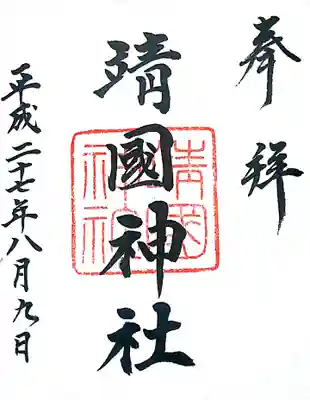 奉拝
靖國神社
平成二十七年八月九日
靖國
神社